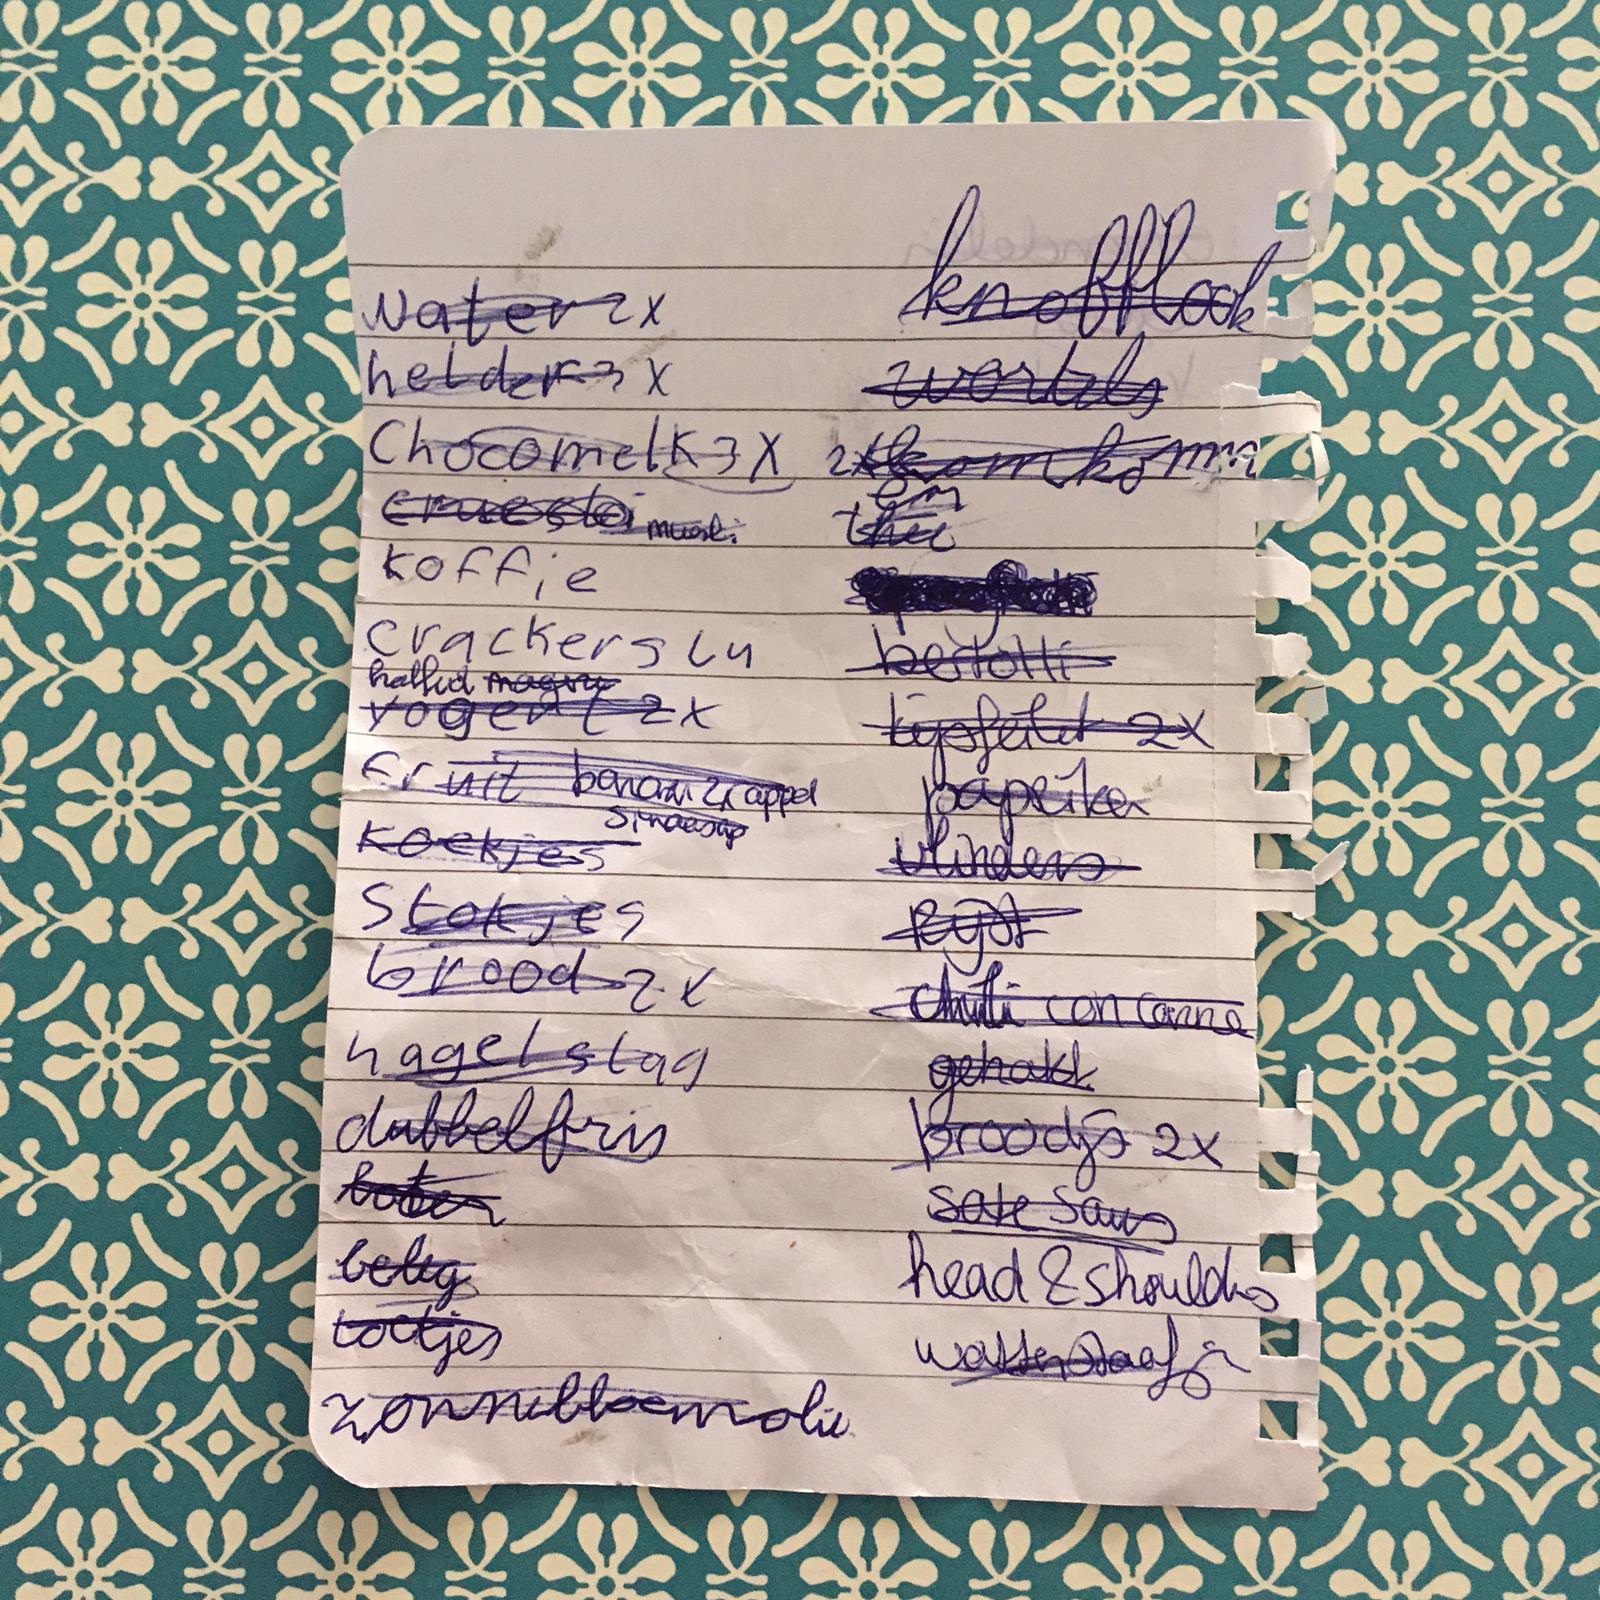 water 2x
helder 3x
Chocomelk 3x
cruesli musli
koffie
crackers LU
halfvol magere
yogert 2x
fruit banaan 2x appel
sinaasap
koekjes
stokjes
brood 2x
hagelslag
dubbelfris
boter
beleg
toetjes
zonnebloemolie
knofflook
wortels
2x komkommer
thee
bertolli
paprika
vlinders
rijst
chilli con carne
gehakt
broodjs 2x
sate saus
head & shoulders
wattenstaafjs